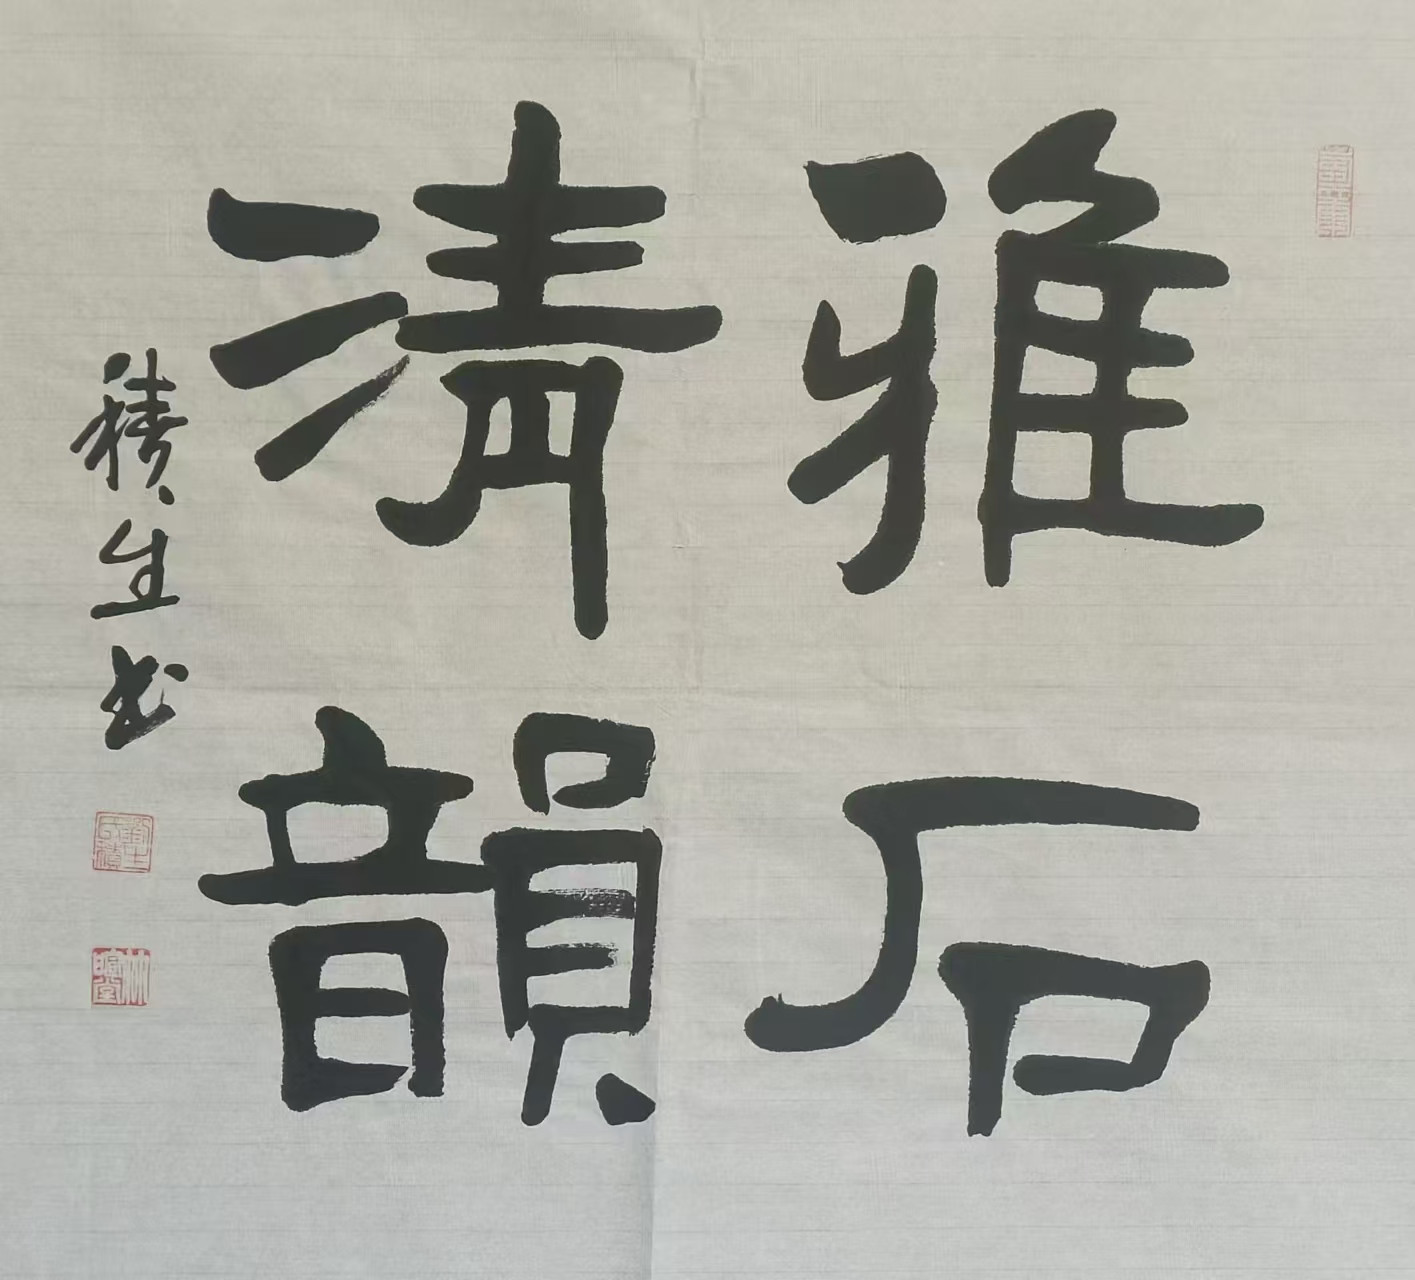 雅石
清韻
積生书